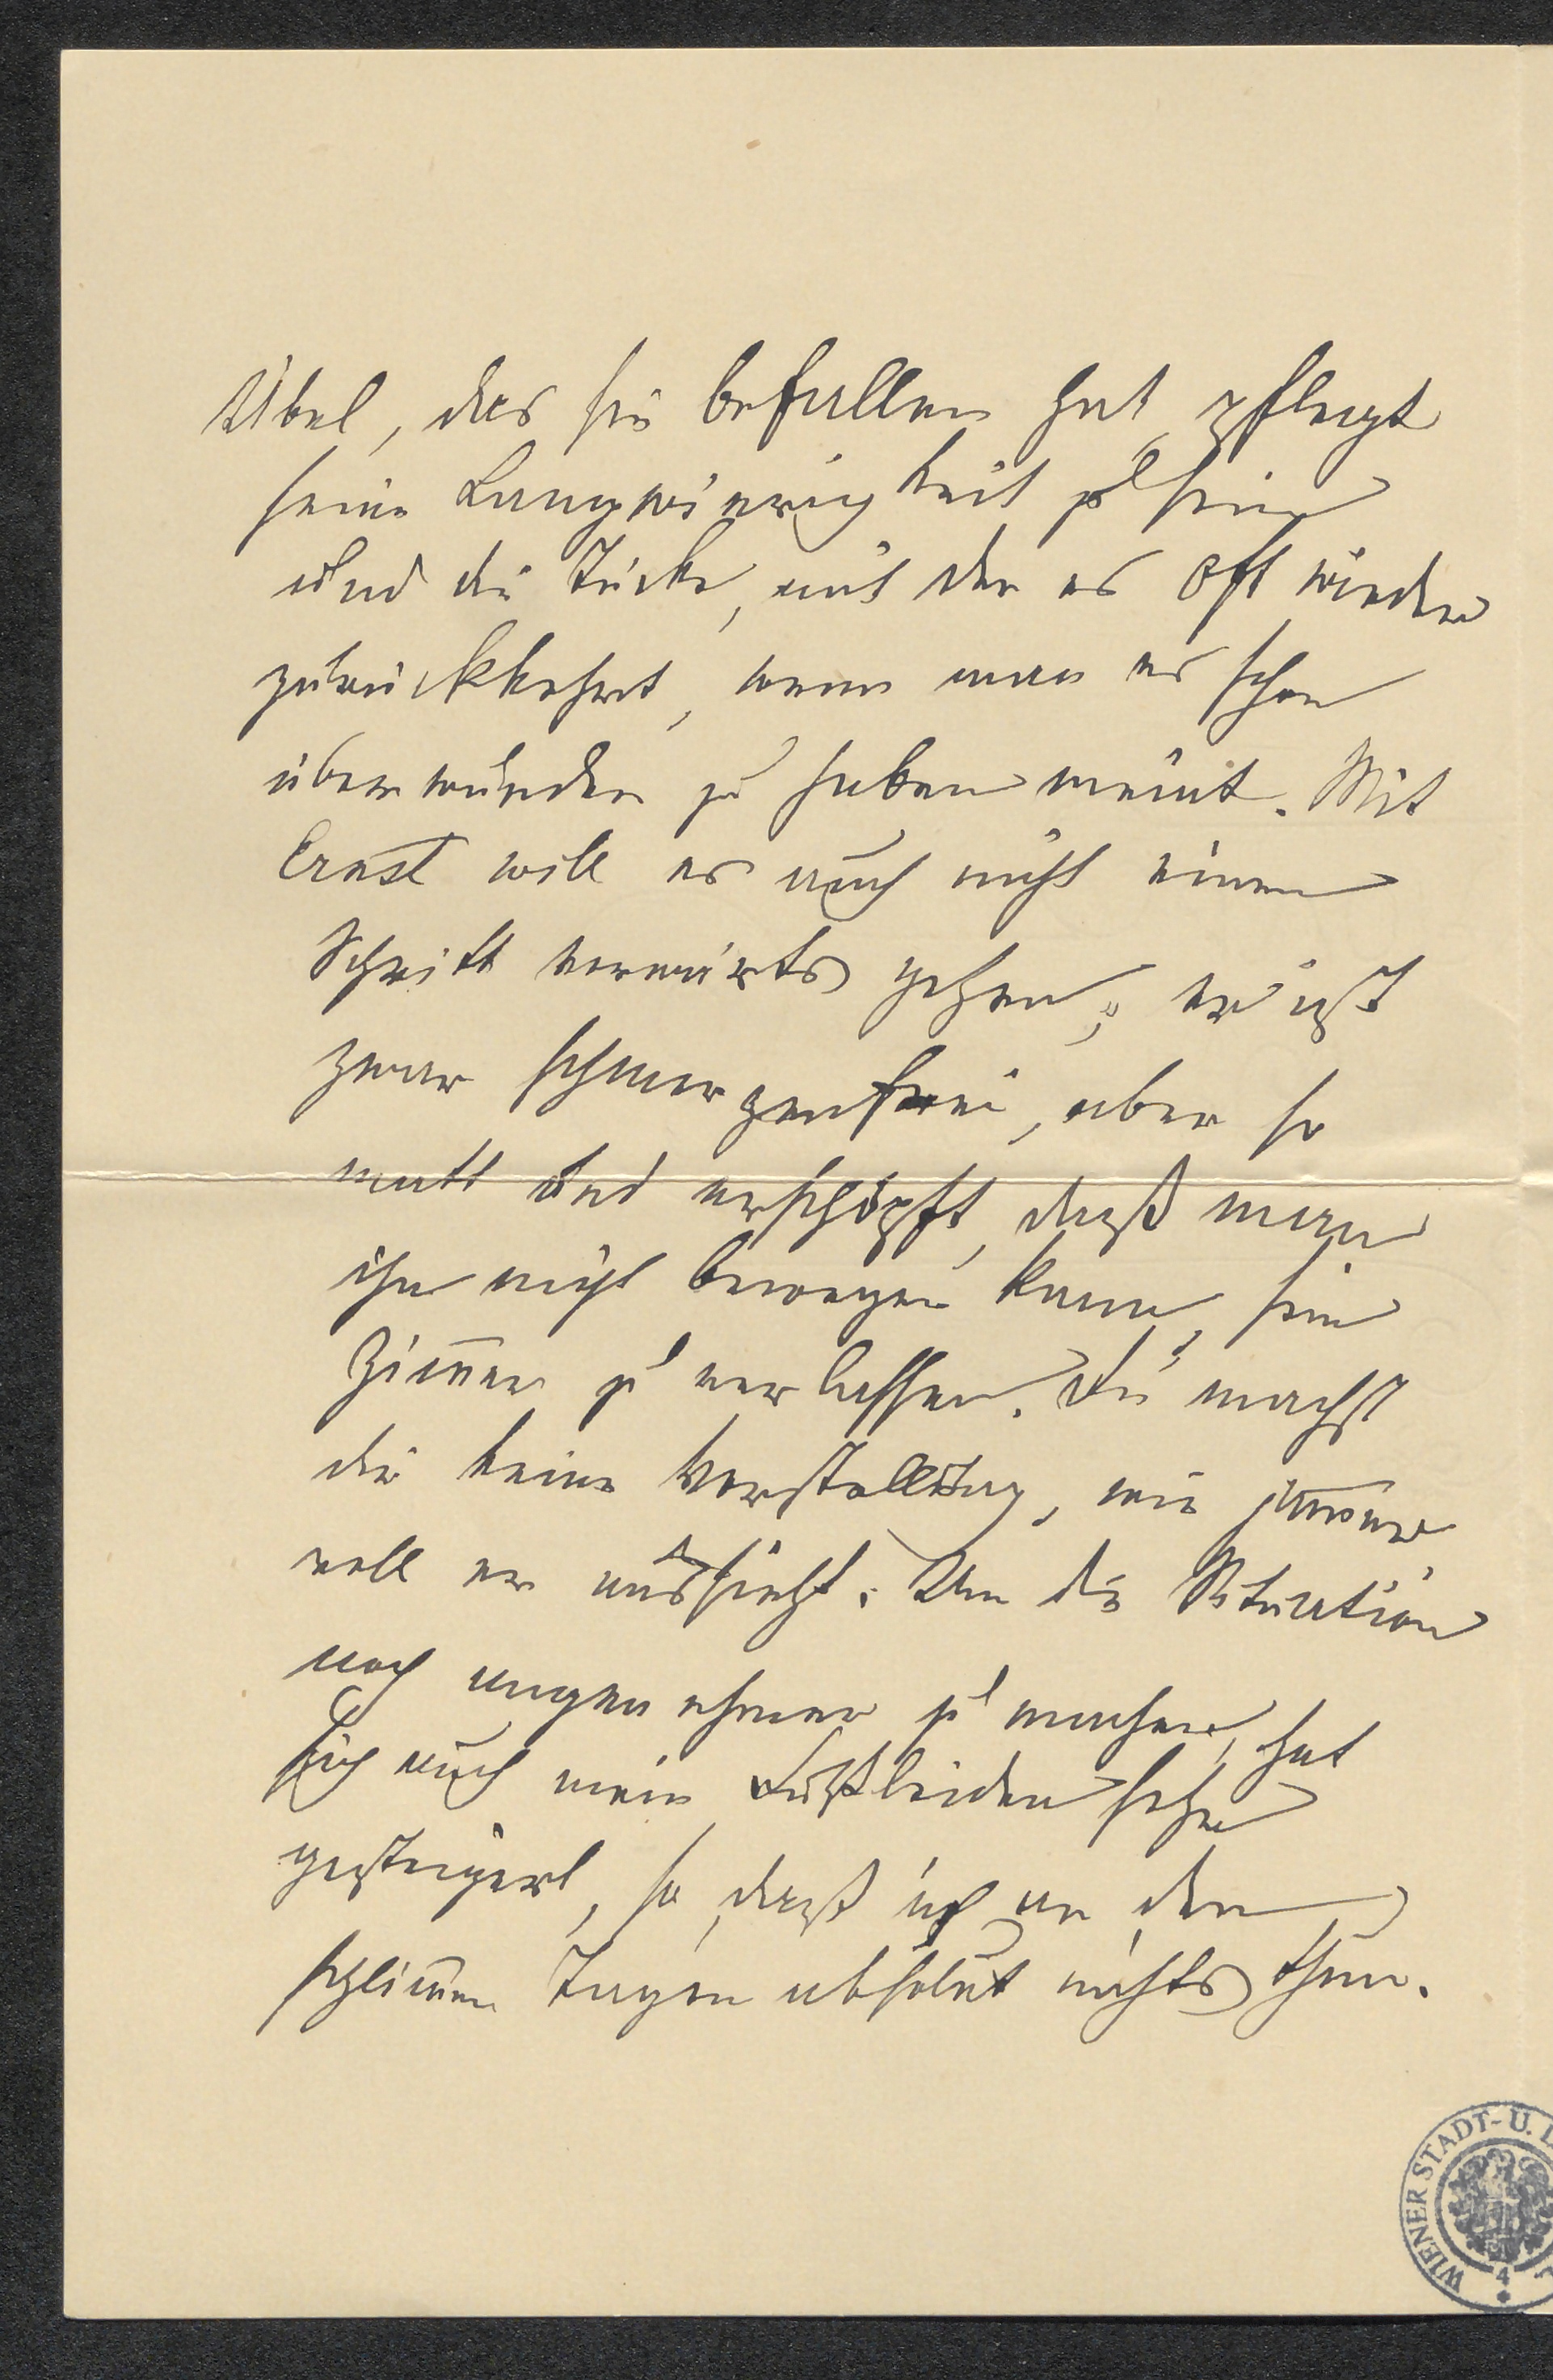 Übel, das sie befallen hat, pflegt
seine Langwierigkeit zu sein
und die Tücke, mit der es oft wieder
zurückkehrt, wenn man es schon
überwunden zu haben meint. Mit
Ernst will es auch nicht einen
Schritt vorwärts gehen; er ist
zwar schmerzenfrei, aber so
matt und erschöpft, daß man
ihn nicht bewegen kann, sein
Zim̅er zu verlassen. Du machst
dir keine Vorstellung, wie jam̅er
voll er aussieht. Um die Situation
noch angenehmer zu machen, hat
sich auch mein Fußleiden sehr
gesteigert, so daß ich an den
schlim̅en Tagen absolut nichts thun.
WIENER STADT- U. L
4